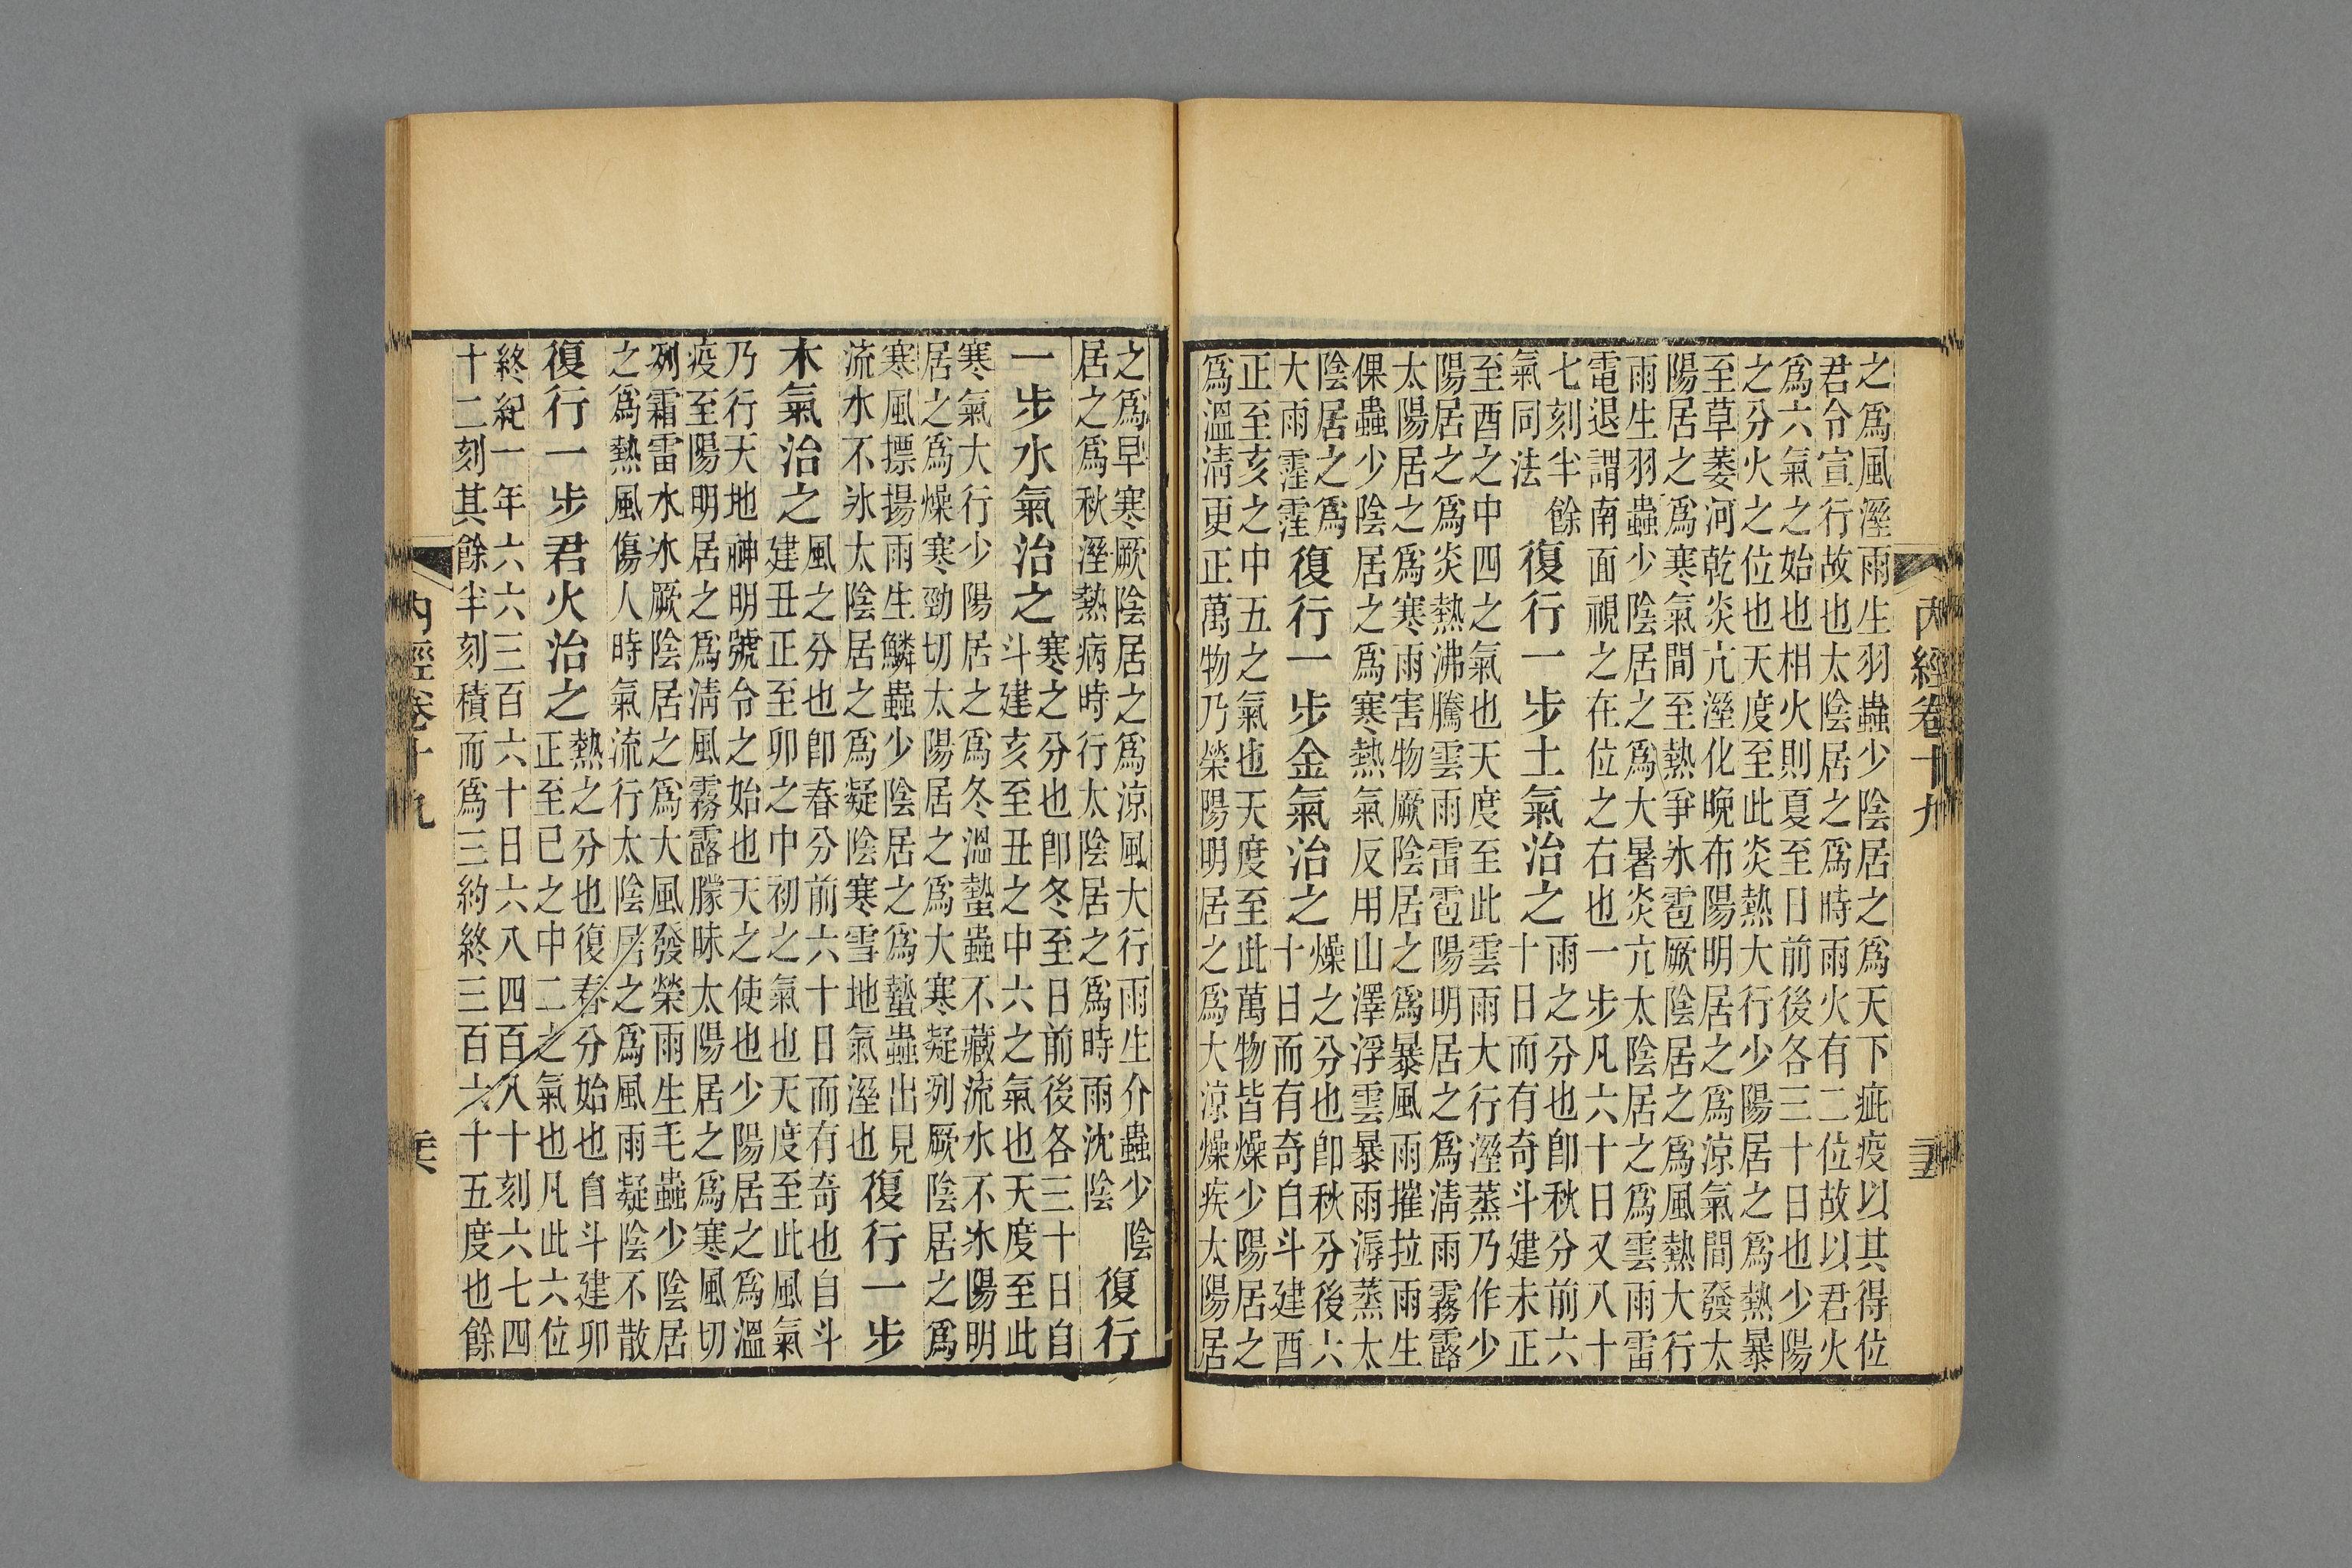 內經卷十九
之爲風溼雨生羽蟲少陰居之爲天下疵疫以其得位
君令宣行故也太陰居之爲時雨火有二位故以君火
爲六氣之始也相火則夏至日前後各三十日也少陽
之分火之位也天度至此炎熱大行少陽居之爲熱暴
至草萎河乾炎亢溼化晚布陽明居之爲涼氣間發太
陽居之爲寒氣間至熱爭冰雹厥陰居之爲風熱大行
雨生羽蟲少陰居之爲大暑炎亢太陰居之爲雲雨雷
電退謂南面視之在位之右也一步凡六十日又八十
七刻半餘
氣同法
復行一步土氣治之
雨之分也卽秋分前六
十日而有奇斗建未正
至酉之中四之氣也天度至此雲雨大行溼蒸乃作少
陽居之爲炎熱沸騰雲雨雷雹陽明居之爲清雨霧露
太陽居之爲寒雨害物厥陰居之爲暴風雨摧拉雨生
倮蟲少陰居之爲寒熱氣反用山澤浮雲暴雨溽蒸太
陰居之爲
大雨霪霪
復行一步金氣治之
燥之分也卽秋分後六
十日而有奇自斗建酉
正至亥之中五之氣也天度至此萬物皆燥少陽居之
爲溫清更正萬物乃榮陽明居之爲大涼燥疾太陽居
之爲早寒厥陰居之爲涼風大行雨生介蟲少陰
居之爲秋溼熱病時行太陰居之爲時雨沈陰
復行
一步水氣治之
寒之分也卽冬至日前後各三十日自
斗建亥至丑之中六之氣也天度至此
寒氣大行少陽居之爲冬溫蟄蟲不藏流水不冰陽明
居之爲燥寒勁切太陽居之爲大寒凝冽厥陰居之爲
寒風摽揚雨生鱗蟲少陰居之爲蟄蟲出見
流水不冰太陰居之爲凝陰寒雪地氣溼也
復行一步
木氣治之
風之分也卽春分前六十日而有奇也自斗
建丑正至卯之中初之氣也天度至此風氣
乃行天地神明號令之始也天之使也少陽居之爲溫
疫至陽明居之爲清風霧露朦昧太陽居之爲寒風切
冽霜雷水冰厥陰居之爲大風發榮雨生毛蟲少陰居
之爲熱風傷人時氣流行太陰居之爲風雨凝陰不散
復行一步君火治之
熱之分也復春分始也自斗建卯
正至巳之中二之氣也凡此六位
終紀一年六六三百六十日六八四百八十刻六七四
十二刻其餘半刻積而爲三約終三百六十五度也餘
內經卷十九